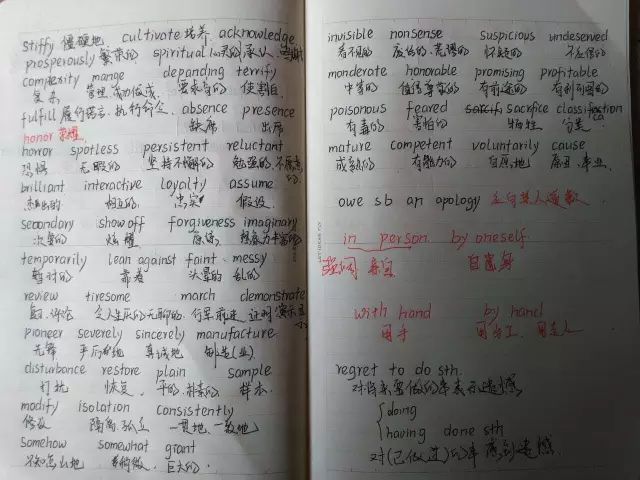 stiffy 僵硬地 cultivate 培养 acknowledge
prosperously 繁荣的 spiritual 心灵的 承认
comperxity mange depanding terrify
复杂 管理 成功做成 要求高的 使害怕
fulfill 履行诺言、执行命令 absence presence
缺席 出席
honor 荣耀
horror spotless persistent reluctant
恐惧 无暇的 坚持不懈的 勉强的 不愿意的
brilliant interactive loyalty assume
杰出的 相互的 忠实 假设
secondary show off forgiveness imaginary
次要的 炫耀
temporarily lean against faint messy
暂时的 靠着 头晕的 乱的
review tiresome march demonstrate
令人生厌的 无聊的 行军 前进 证明 演示
pioneer severely sincerely manufacture
先锋 严厉地 真诚地 制造(业)
disturbance restore plain sample
打扰 恢复 平的 朴素的 样本
modify isolation consistently
修改 隔离 孤立 一贯地 一致地
somehow somewhat grant
不知怎么地 稍微 巨大的
invisible nonsense suspicious undeserved
看不见的 废话的 荒谬的 怀疑的 不应得的
monderate honorable promising profitable
中等的 值得尊敬的 有前途的 有利可图的
poisonous feared sacrfice classifection
有毒的 害怕的 牺牲 分类 ca
mature competent voluntarily cause
成熟的 有能力的 自愿地 原因 事业
owe sb an apology 应向某人道歉
in person by oneself
强调 亲自 自家身
with hand by hand
用手 用手工
regret to do sth.
对将来要做的事表示遗憾
doing
having done sth
对(已做过)的事感到遗憾